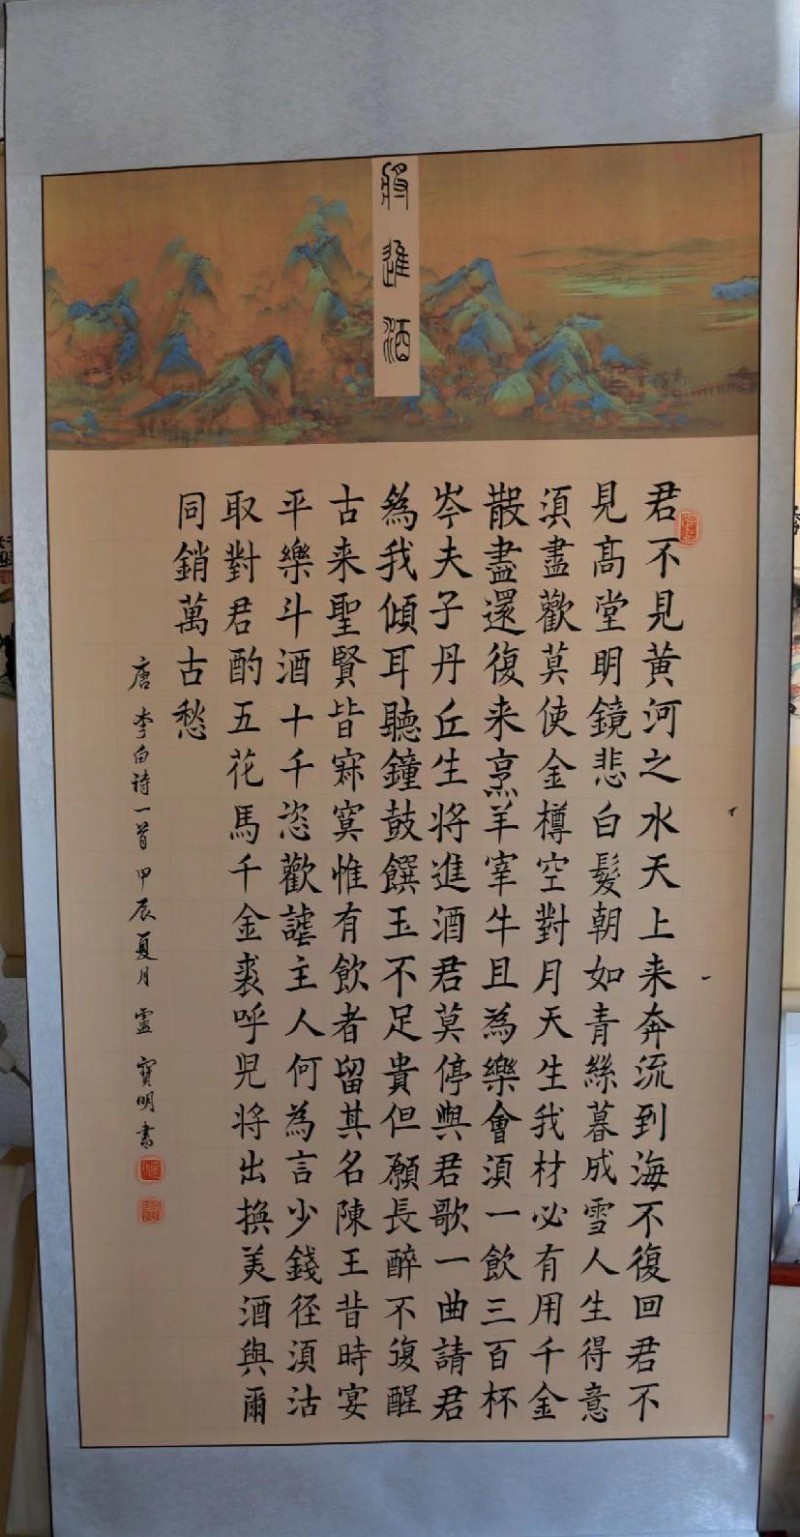 將進酒
君不見黄河之水天上来奔流到海不復回君不
見髙堂明鏡悲白髮朝如青絲暮成雪人生得意
須盡歡莫使金樽空對月天生我材必有用千金
散盡還復来烹羊宰牛且為樂會須一飲三百杯
岑夫子丹丘生将進酒君莫停與君歌一曲請君
為我傾耳聽鐘鼓饌玉不足貴但願長醉不復醒
古来聖賢皆寂寞惟有飲者留其名陳王昔時宴
平樂斗酒十千恣歡謔主人何為言少錢径須沽
取對君酌五花馬千金裘呼児将出換美酒與爾
同銷萬古愁
唐 李白诗一首 甲辰夏月 靈 寳明書